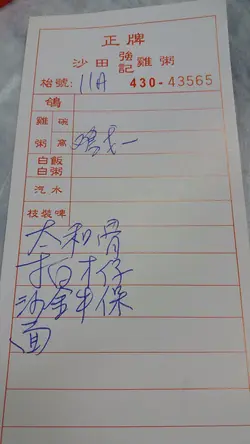 正牌
沙田強記雞粥
枱號: 11A 430-43565
鴿
雞 碗
粥 窩
白飯
白粥
汽水
枝裝啤
太和骨
拍才仔
沙金牛保
面